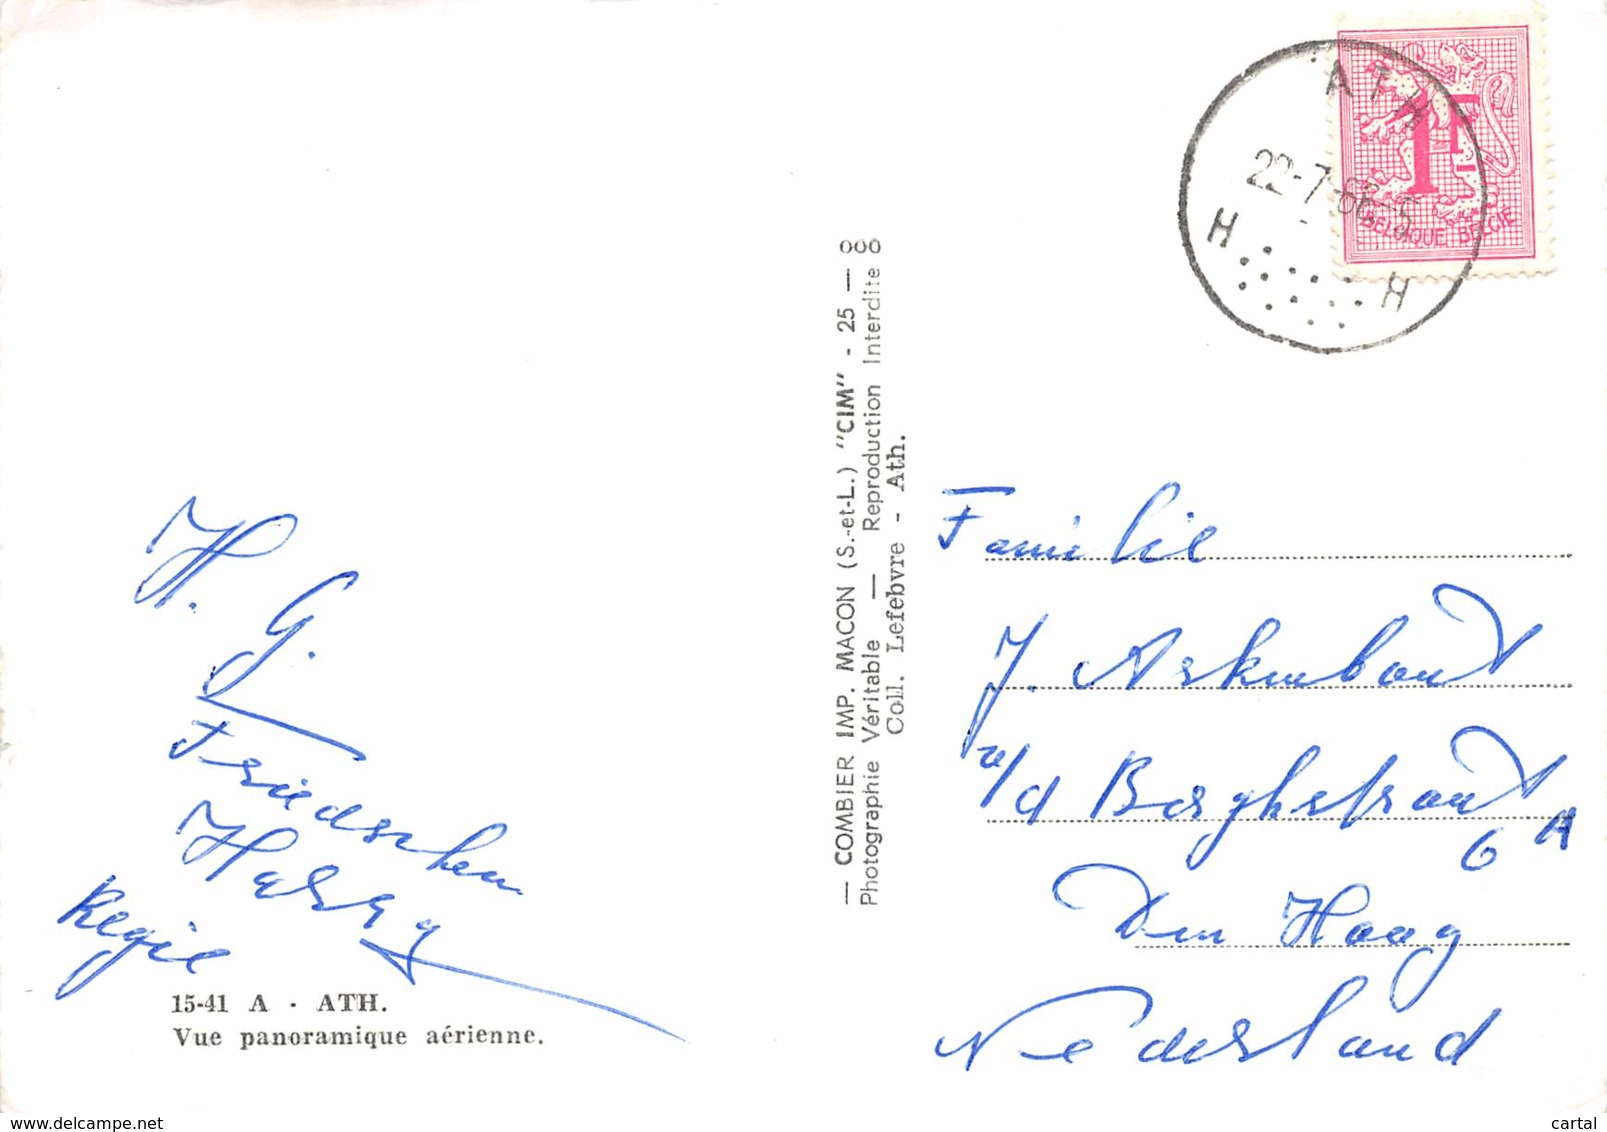 ATH
22-7-66-5
H H
1F
BELGIQUE-BELGIË
— COMBIER IMP. MACON (S.-et-L.) "CIM" - 25 —
Photographie Véritable — Reproduction Interdite
Coll. Lefebvre - Ath.
H.
G.
Friedschen
Harry
Regie
15-41 A - ATH.
Vue panoramique aérienne.
Familie
J. Arkenbout
v/d Berghstraat
6 A
Den Haag
Nederland
www.delcampe.net
cartal